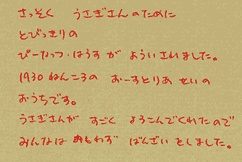 さっそく　うさぎさんのために
とびっきりの
ぴーなっつ・はうす が　よういされました。
1930 ねんころの　おーすとりあ せいの
おうちです。
うさぎさんが　すごく　よろこんでくれたので
みんなは おもわず　ばんざい としました。